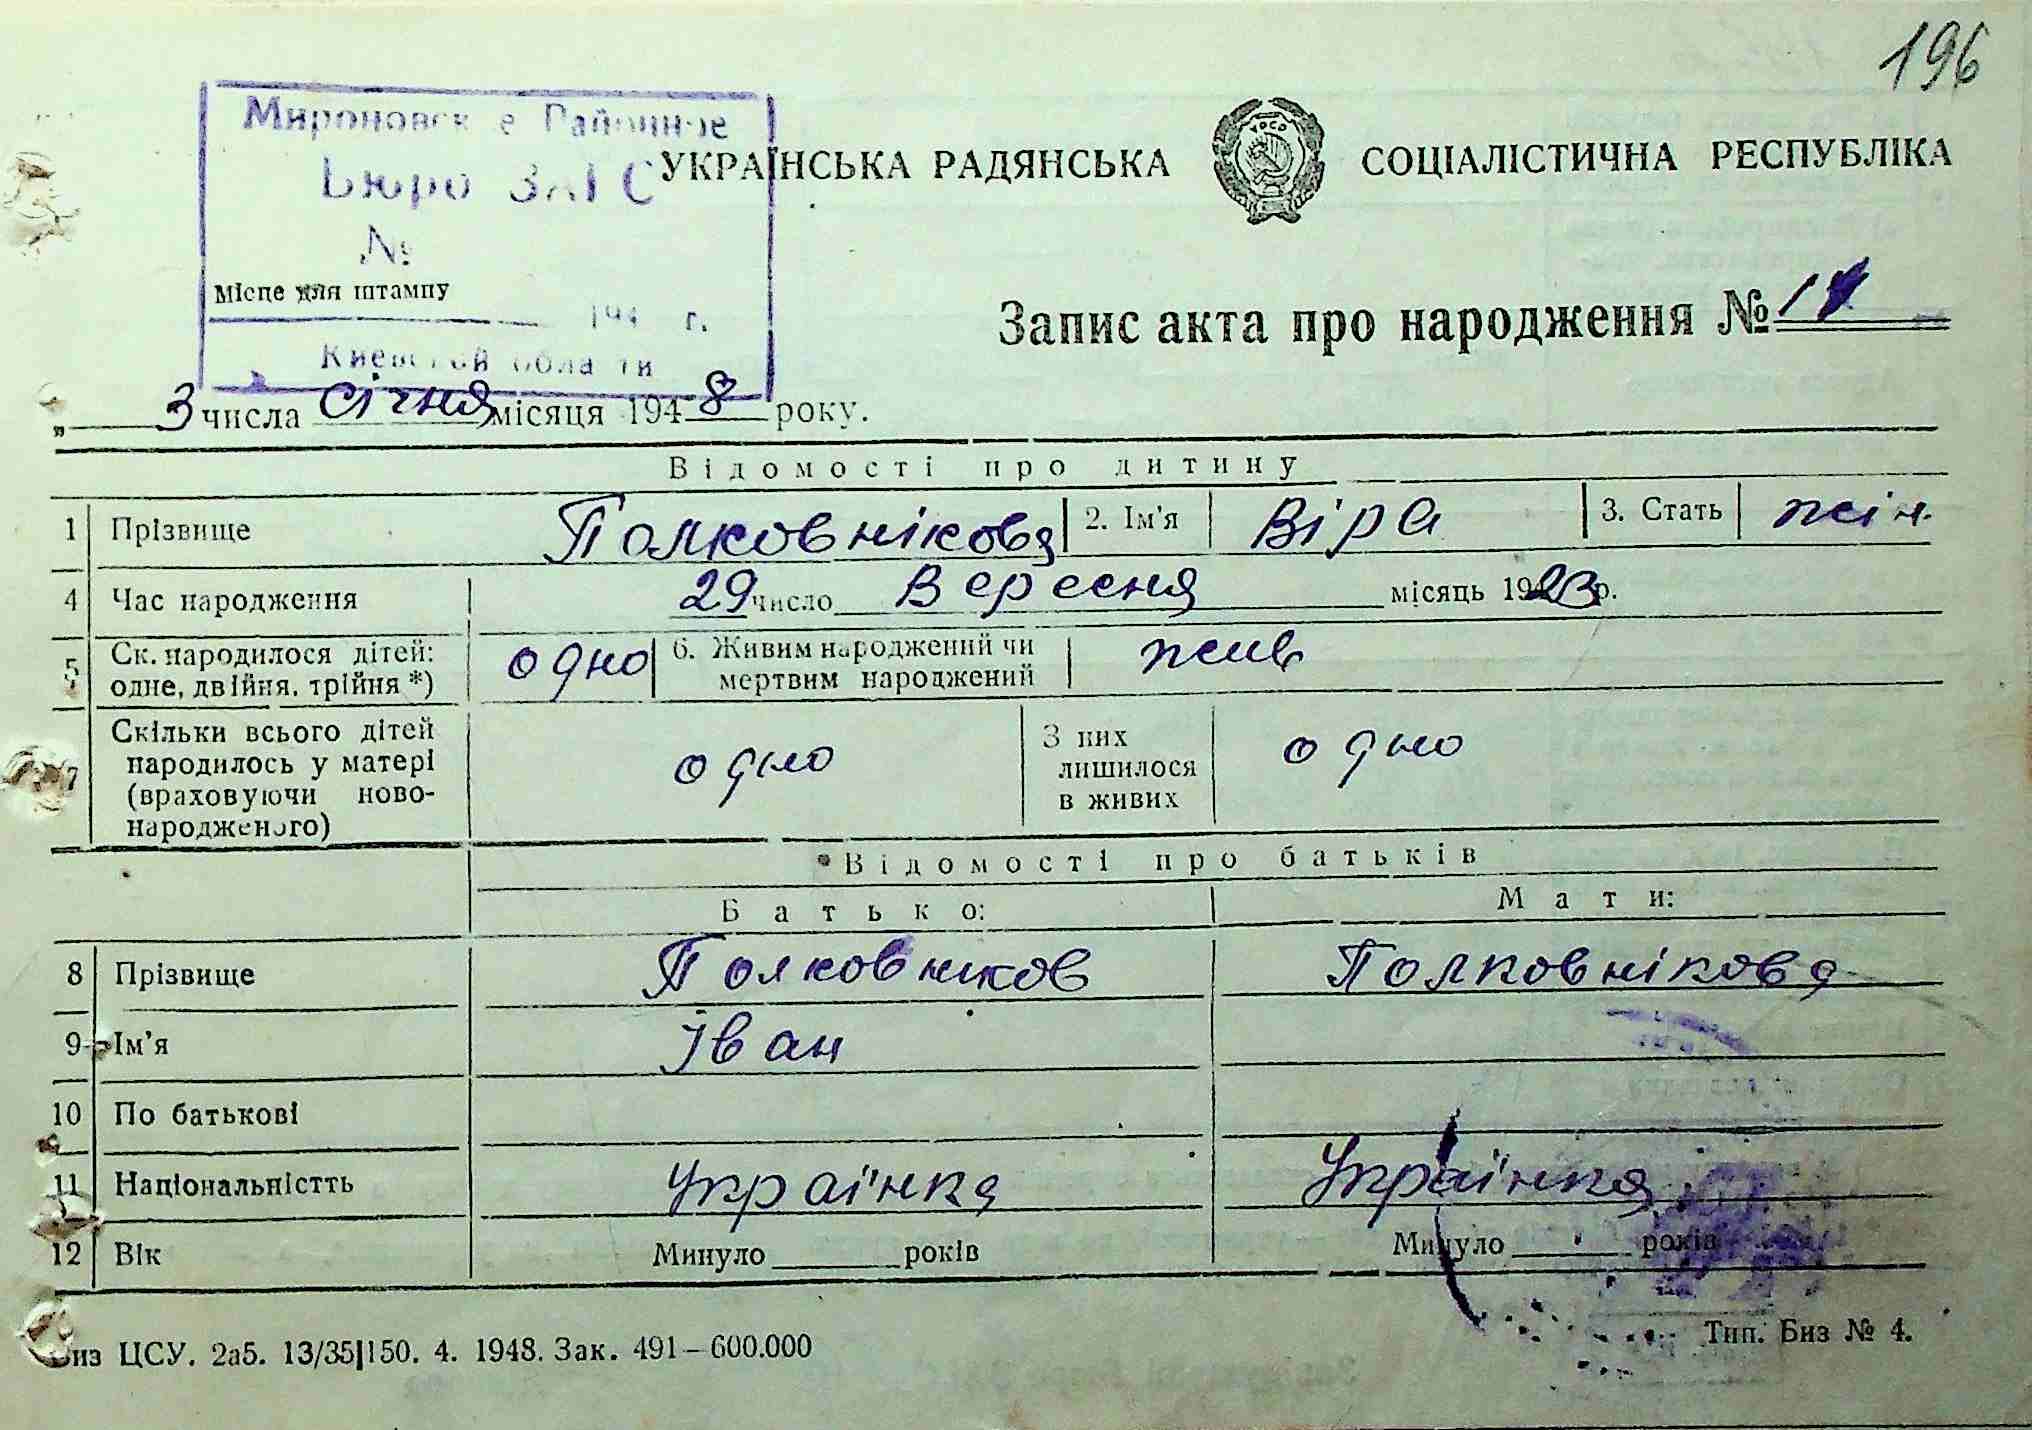 196
Мироновск е Районное
Бюро ЗАГС
№
УКРАЇНСЬКА РАДЯНСЬКА СОЦІАЛІСТИЧНА РЕСПУБЛІКА
Місце для штампу
194 г.
Киевской области
Запис акта про народження №
„ 3 числа січня місяця 1948 року.
Відомості про дитину
1 Прізвище Полковнікова 2. Ім'я Віра 3. Стать жін.
4 Час народження 29 число Вересня місяць 1923 р.
5 Ск. народилося дітей: одно 6. Живим народжений чи жив
одне, двійня, трійня *) мертвим народжений
7 Скільки всього дітей одно З них одно
народилось у матері лишилося
(враховуючи ново- в живих
народженого)
Відомості про батьків
Батько: Мати:
8 Прізвище Полковников Полковнікова
9 Ім'я Іван
10 По батькові
11 Національністть Українка Українка
12 Вік Минуло років Минуло років
Биз ЦСУ. 2аб. 13/35|150. 4. 1948. Зак. 491–600.000 Тип. Биз № 4.